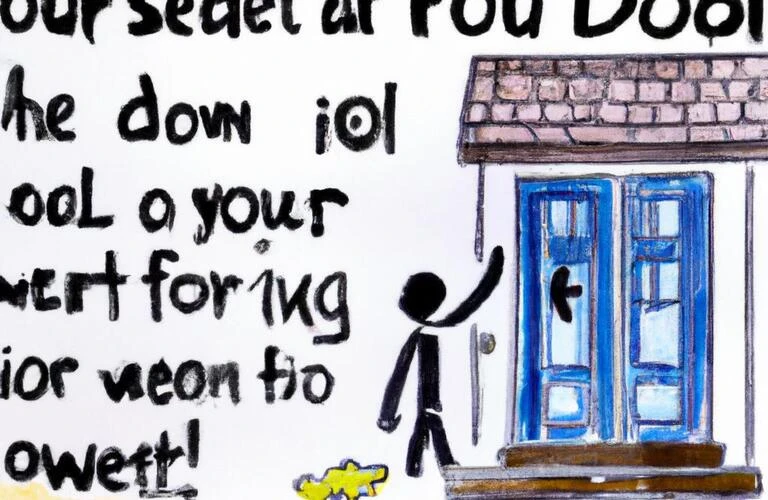 our sedel ar Fou Dool
he down iol
ooL a your
wert for ing
ior weon fio
owett!